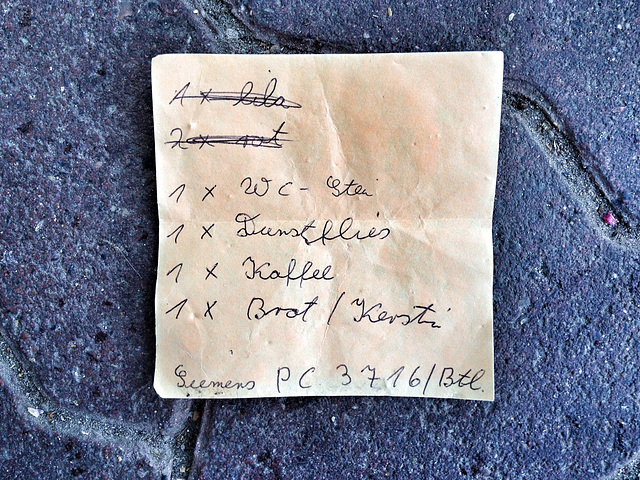 1 x lila
2 x rot
1 x WC-Stein
1 x Dunstflies
1 x Kaffee
1 x Brot / Kerstin
Siemens PC 3716/Btl.